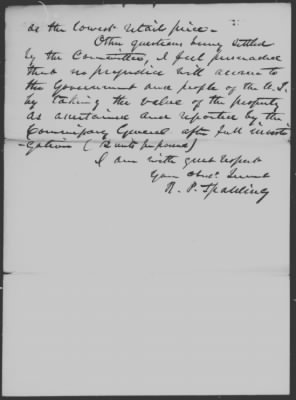 as the lowest retail price -
Other questions being settled
by the Committee, I feel persuaded
that no prejudice will accrue to
the Government and people of the U.S.
by taking the value of the property
as ascertained and reported by the
Commissary General after full investi
-gation (8 cents per pound)
I am with great respect
Your Obdt. Servant
R. P. Spalding